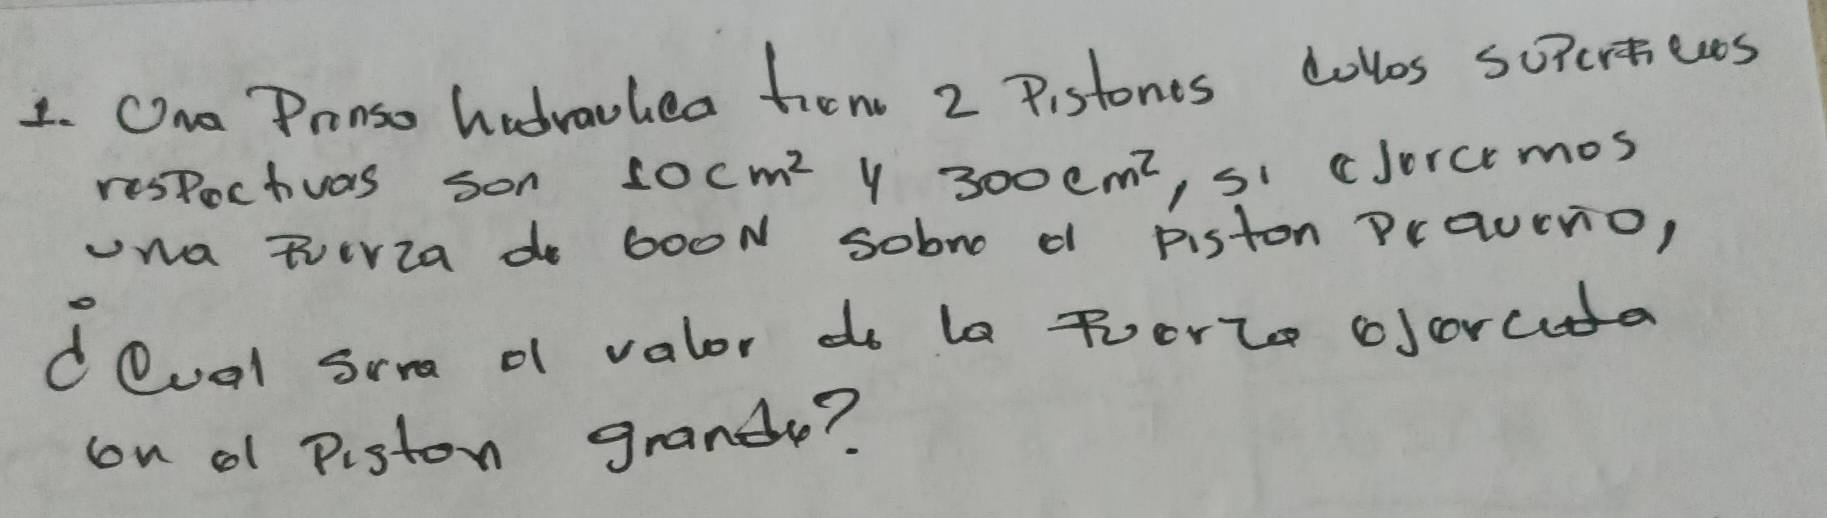 1. Una Prensa hidraulica tiene 2 Pistones cullos superficies
respectivas son 10cm² y 300cm², si ejercemos
una Fuerza de 600N sobre el piston Pequeño,
¿Cual sera el valor de la Fuerza ejercida
en el Piston grande?